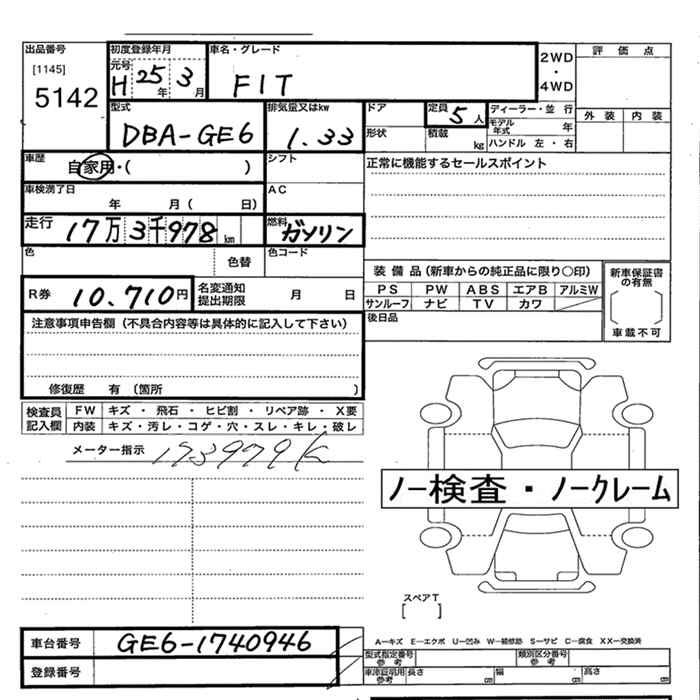 出品番号
[1145]
5142
初度登録年月
元号
H 25年 3月
車名・グレード
FIT
2WD
・
4WD
評価点
外装 内装
型式
DBA-GE6
排気量又はkw
1.33
ドア
定員 5人
形状
積載 kg
ディーラー・並行
モデル年式 年
ハンドル 左・右
車歴
自家用・( )
シフト
正常に機能するセールスポイント
車検満了日
年 月( 日)
AC
走行
17万3千978km
燃料
ガソリン
色
色替
色コード
装備品(新車からの純正品に限り○印)
PS PW ABS エアB アルミW
サンルーフ ナビ TV カワ
新車保証書の有無
車載不可
R券 10.710円
名変通知提出期限
月 日
後日品
注意事項申告欄(不具合内容等は具体的に記入して下さい)
修復歴 有 (箇所 )
検査員記入欄
FW キズ・飛石・ヒビ割・リペア跡・X要
内装 キズ・汚レ・コゲ・穴・スレ・キレ・破レ
メーター指示 173979K
ノー検査・ノークレーム
スペアT
[ ]
車台番号 GE6-1740946
登録番号
A―キズ E―エクボ U―凹み W―補修跡 S―サビ C―腐食 XX―交換済
型式指定番号
参考
類別区分番号
参考
車庫証明用
参考
長さ cm
幅 cm
高さ cm